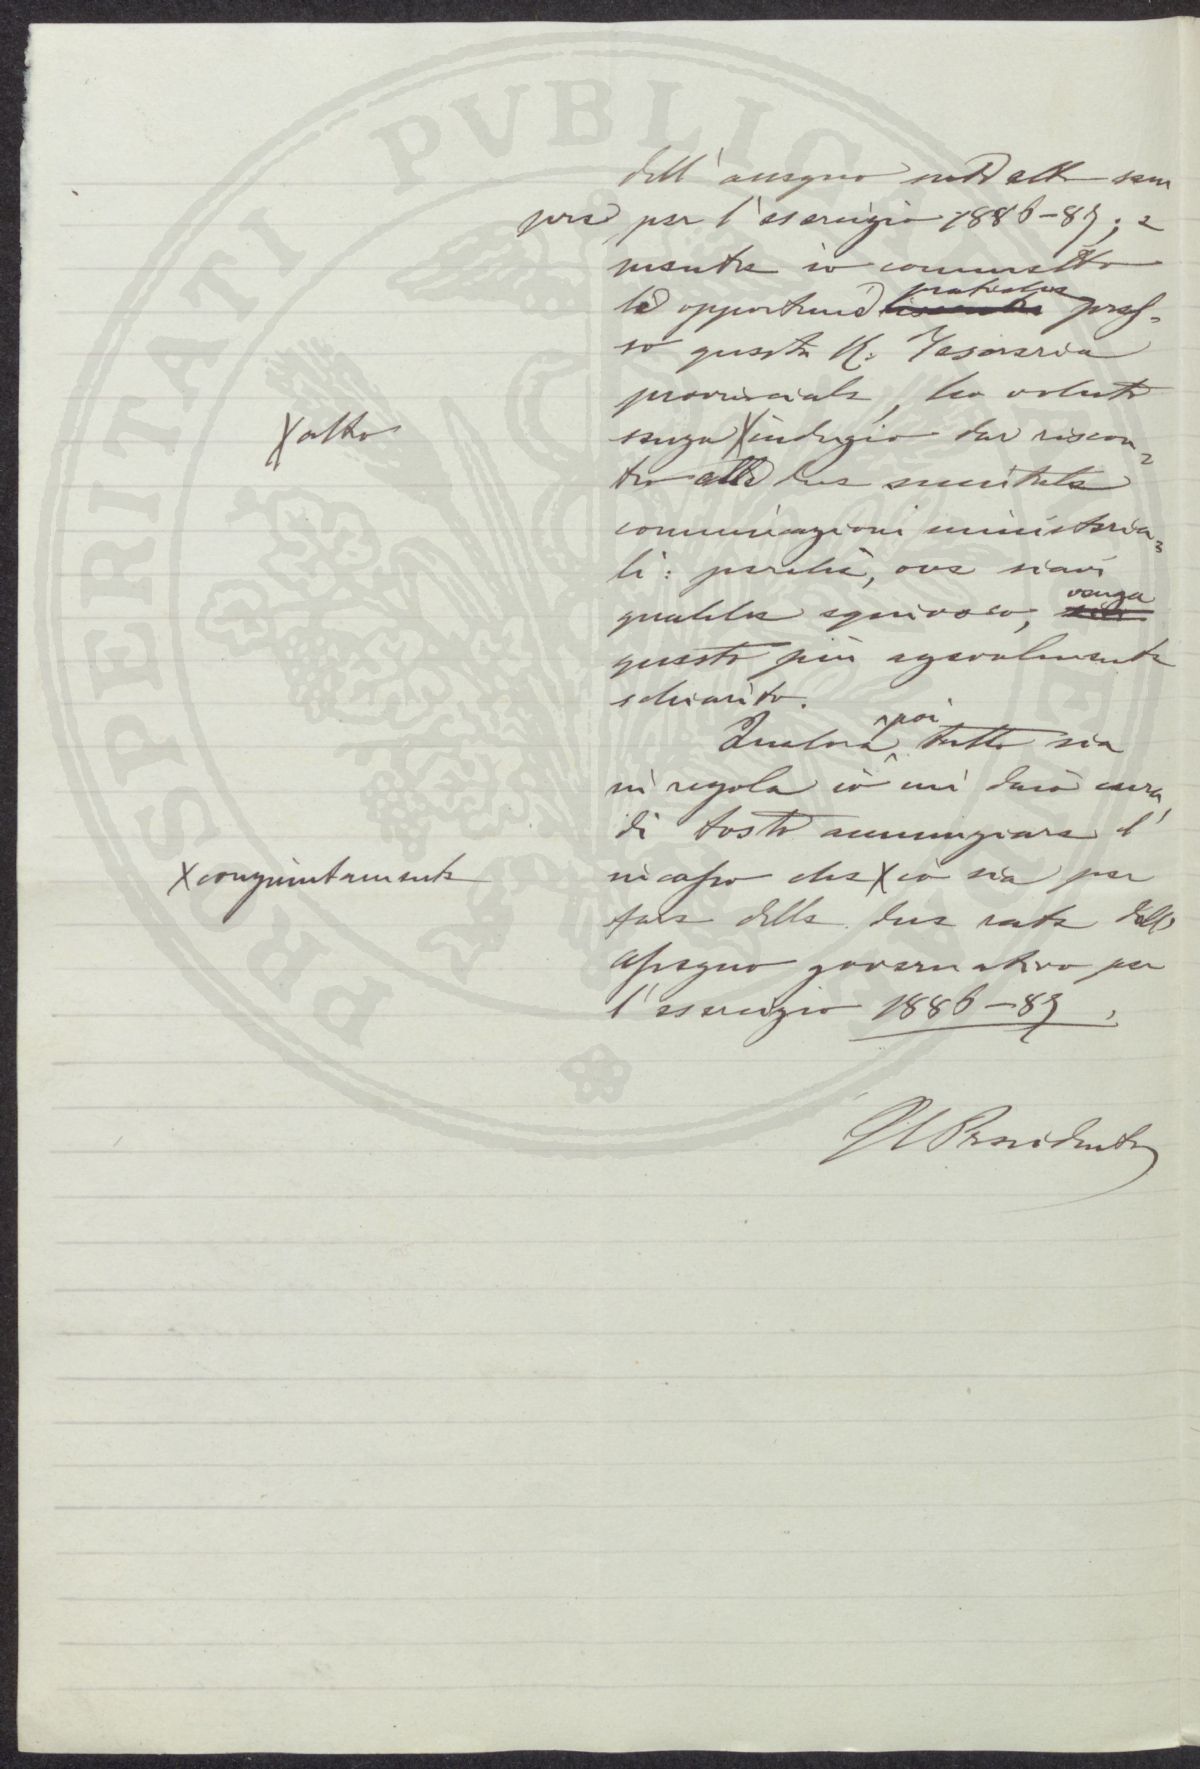 dell'assegno suddetto sem
pre per l'esercizio 1886-87; e
mentre io commetto
le opportune pratiche pres-
so questa R: Tesoreria
provinciale, ho voluto
senza X indugio dar riscon-
X altro
tro alle due succitate
comunicazioni ministeria-
li: perchè, ove siavi
qualche equivoco, venga
questo più agevolmente
schiarito.
Qualora poi tutto sia
in regola io mi darò cura
di tosto annunziare l'
incasso che X io sia per
X congiuntamente
fare delle due rate dello
assegno governativo per
l'esercizio 1886-87.
Il Presidente
PROSPERITATI PVBLICAE